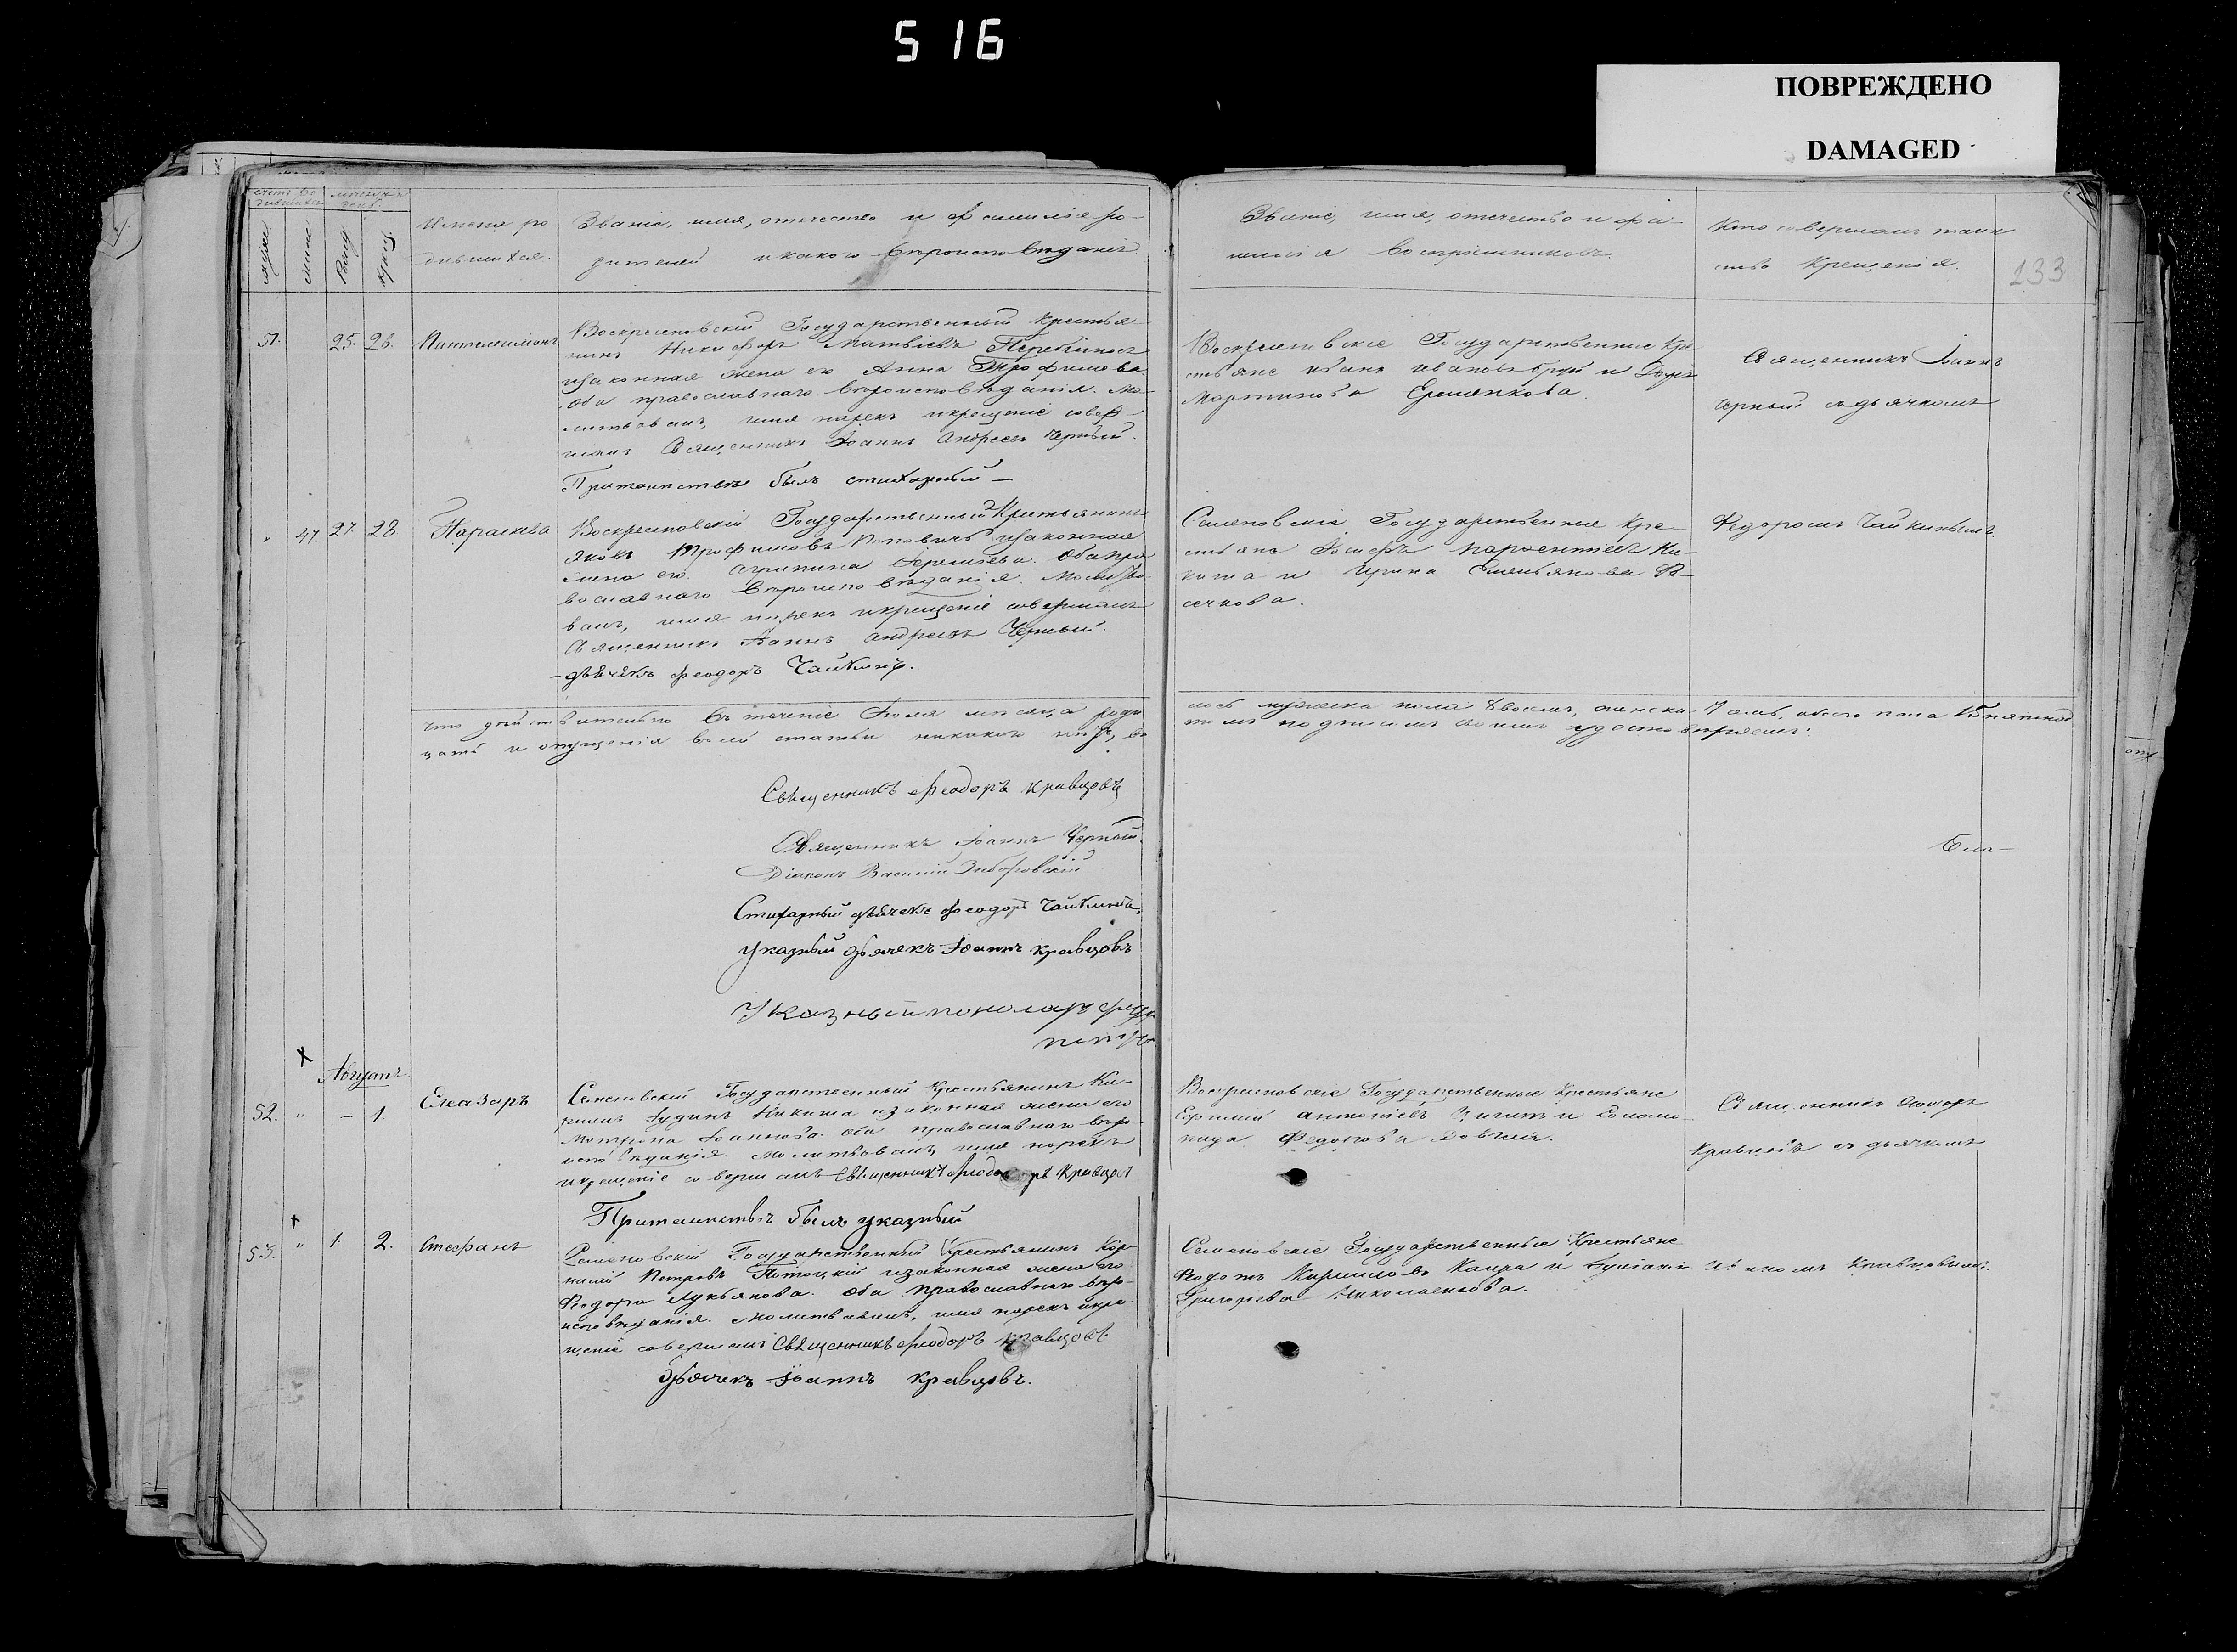 516
ПОВРЕЖДЕНО
DAMAGED
133
Счетъ ро
дившихся
мѣсяцъ
день
муж
жен
Рожд
Крещ
Имена ро
дившихся.
Званіе, имя, отечество и фамилія ро-
дителей и какого Вѣроисповѣданія.
Званіе, имя, отечество и фа-
милія Воспріемниковъ.
Кто совершалъ таин
ство Крещенія.
51. 25. 26. Пантелеимонъ
Воскресеновскій Государственный Крестья-
нинъ Никифоръ Матвѣевъ
изаконная жена его Анна Трофимова
Оба православнаго вѣроисповѣданія. Мо-
литвовалъ, имя нарекъ икрещеніе совер-
шалъ Священникъ Іоаннъ Андреевъ Черный.
Притаинствѣ былъ стихарный —
Воскресеновскіе Государственные Кре
стьяне Иванъ Ивановъ и Дарья
Мартинова Еременкова.
Священникъ Іоаннъ
Черный съ дьячкомъ
" 47. 27 28 Параскева
Воскресеновскій Государственный Крестьянинъ
Яковъ Трофимовъ Поповичъ изаконная
жена его Агрипина Еремѣева. Оба пра
вославнаго Вѣроисповѣданія. Молитво-
валъ, имя нарекъ икрещеніе совершалъ
Священникъ Іоаннъ Андреевъ Черный.
– дьячекъ Феодоръ Чайкинъ.
Семеновскіе Государственные Кре-
стьяне Іосифъ Пароентіевъ Ки-
и Ирина Емельянова
Федоромъ Чайкинымъ.
что дѣйствительно въ теченіе Іюля мѣсяца роди
лось мужеска пола 8 восемь, женска 7 семь, обоего пола 15 пятнад
цать и опущенія въ сей статьи никакого нѣтъ, въ
томъ подписомъ своимъ удостовѣряемъ:
Священникъ Феодоръ Кравцовъ
Священникъ Іоаннъ Черный.
Діаконъ Василій
Стихарный дьячекъ Феодоръ Чайкинъ.
Указный дьячекъ Іоаннъ Кравцовъ
Указный пономарь
Бла-
Августъ
52. " – 1. Елазаръ
Семеновскій Государственный Крестьянинъ Ки-
рилъ Іудинъ Никита изаконная жена его
Матрона Іоаннова оба православнаго вѣро-
исповѣданія. Молитвовалъ, имя нарекъ
икрещеніе совершалъ Священникъ Феодоръ Кравцовъ
Притаинствѣ былъ указный
Воскресеновскіе Государственные Крестьяне
Антоніевъ и Соломо-
нида Федорова
Священникъ Феодоръ
Кравцовъ съ дьячкомъ
53. " 1. 2. Стефанъ
Семеновскій Государственный Крестьянинъ Кор-
нилій Петровъ изаконная жена его
Феодора Лукьянова. Оба православнаго вѣро-
исповѣданія. Молитвовалъ, имя нарекъ икре-
щеніе совершалъ Священникъ Феодоръ Кравцовъ
Дьячекъ Іоаннъ Кравцовъ.
Семеновскіе Государственные Крестьяне
Федотъ Кириловъ и Іуліанія
Григоріева Николаенкова.
Іваномъ Кравцовымъ.